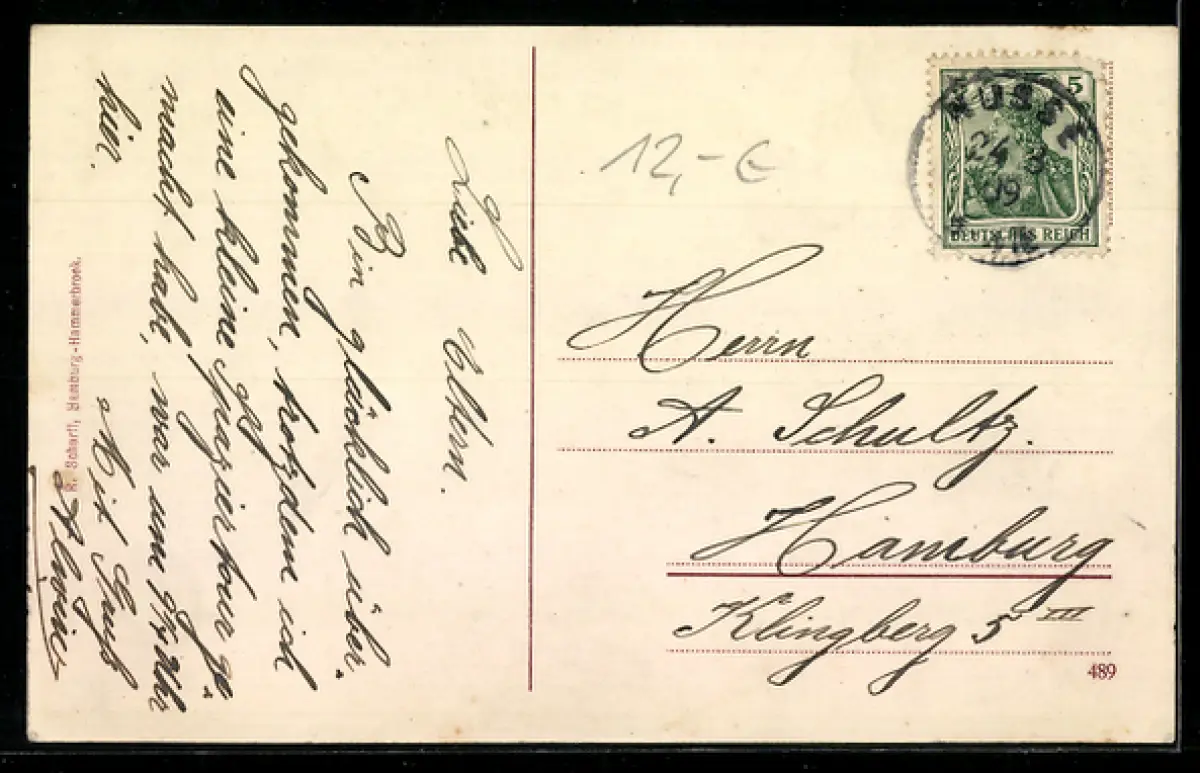 Liebe Eltern.
Bin glücklich über-
gekommen, trotzdem ich
eine kleine Spaziertour ge-
macht habe, war um Uhr
hier.
Mit Gruß
Alwine
R. Scharff, Hamburg-Hammerbrook.
12,- €
5
24 3
09
DEUTSCHES REICH
Herrn
A. Schultz.
Hamburg
Klingberg 5 III
489